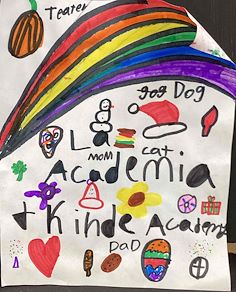 Teater
Dog
La
MOM cat
Academia
+ Kinde Academy
DaD